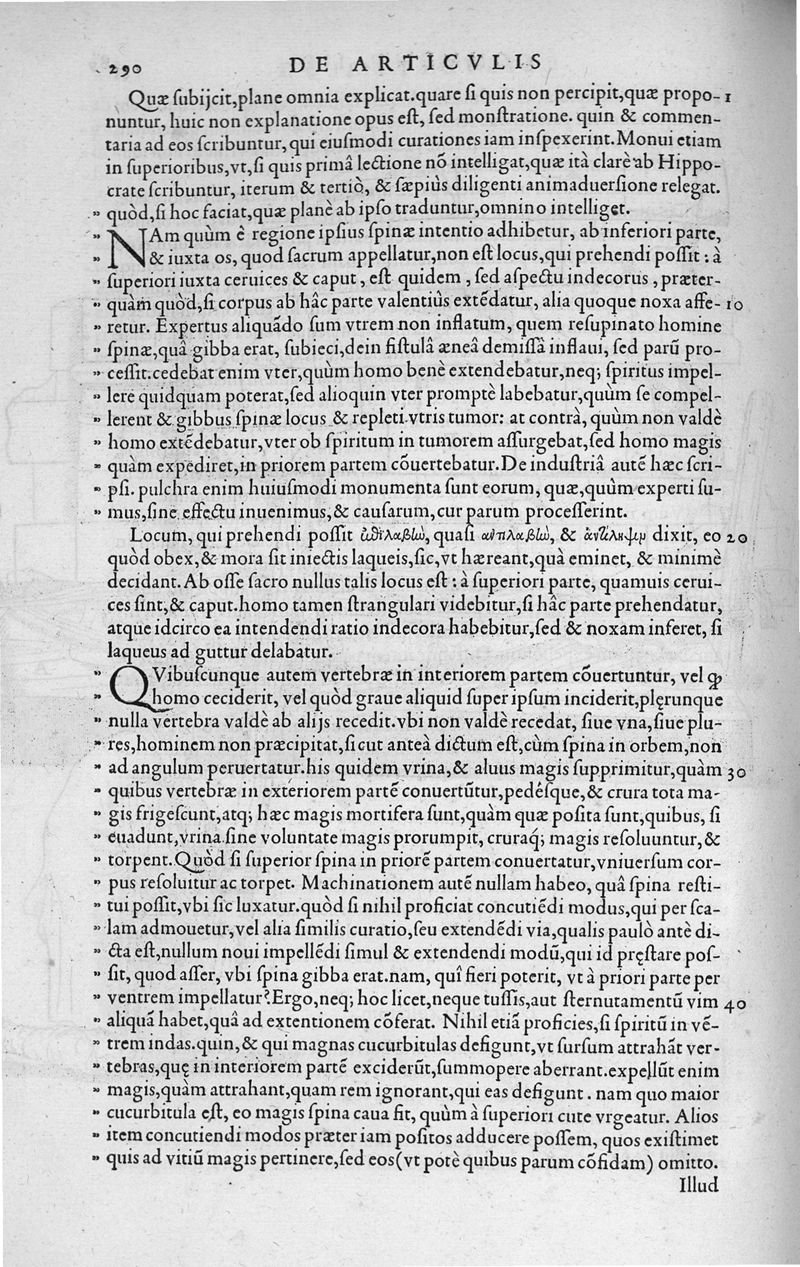 290 DE ARTICVLIS
Quæ ſubijcit,plane omnia explicat.quare ſi quis non percipit,quæ propo- 1
nuntur, huic non explanatione opus eſt, ſed monſtratione. quin & commen-
taria ad eos ſcribuntur, qui eiuſmodi curationes iam inſpexerint. Monui etiam
in ſuperioribus,vt,ſi quis primâ lectione nō intelligat,quæ ità clarè ab Hippo-
crate ſcribuntur, iterum & tertiò, & ſæpiùs diligenti animaduerſione relegat.
" quòd,ſi hoc faciat,quæ planè ab ipſo traduntur,omnino intelliget.
" NAm quùm è regione ipſius ſpinæ intentio adhibetur, ab inferiori parte,
" & iuxta os, quod ſacrum appellatur,non eſt locus,qui prehendi poſſit : à
" ſuperiori iuxta ceruices & caput , eſt quidem , ſed aſpectu indecorus , præter-
" quàm quòd,ſi corpus ab hâc parte valentiùs extēdatur, alia quoque noxa affe- 10
" retur. Expertus aliquādo ſum vtrem non inflatum, quem reſupinato homine
" ſpinæ,quâ gibba erat, ſubieci,dein fiſtulâ æneâ demiſſâ inflaui, ſed parū pro-
" ceſſit.cedebat enim vter,quùm homo benè extendebatur,neq; ſpiritus impel-
" lere quidquam poterat,ſed alioquin vter promptè labebatur,quùm ſe compel-
" lerent & gibbus ſpinæ locus & repleti vtris tumor: at contrà, quùm non valdè
" homo extēdebatur,vter ob ſpiritum in tumorem aſſurgebat,ſed homo magis
" quàm expediret,in priorem partem cōuertebatur.De induſtriâ autē hæc ſcri-
" pſi. pulchra enim huiuſmodi monumenta ſunt eorum, quæ,quùm experti ſu-
" mus,ſine effectu inuenimus,& cauſarum,cur parum proceſſerint.
Locum, qui prehendi poſſit quaſi & dixit, eo 20
quòd obex,& mora ſit iniectis laqueis,ſic,vt hæreant,quà eminet, & minimè
decidant. Ab oſſe ſacro nullus talis locus eſt : à ſuperiori parte, quamuis cerui-
ces ſint,& caput.homo tamen ſtrangulari videbitur,ſi hâc parte prehendatur,
atque idcirco ea intendendi ratio indecora habebitur,ſed & noxam inferet, ſi
laqueus ad guttur delabatur.
" QVibuſcunque autem vertebræ in interiorem partem cōuertuntur, vel ꝙ
" homo ceciderit, vel quòd graue aliquid ſuper ipſum inciderit,plęrunque
" nulla vertebra valdè ab alijs recedit.vbi non valdè recedat, ſiue vna,ſiue plu-
" res,hominem non præcipitat,ſicut anteà dictum eſt,cùm ſpina in orbem,non
" ad angulum peruertatur.his quidem vrina,& aluus magis ſupprimitur,quàm 30
" quibus vertebræ in exteriorem partē conuertūtur,pedéſque,& crura tota ma-
" gis frigeſcunt,atq; hæc magis mortifera ſunt,quàm quæ poſita ſunt,quibus, ſi
" euadunt,vrina ſine voluntate magis prorumpit, cruraq́; magis reſoluuntur,&
" torpent.Quòd ſi ſuperior ſpina in priorē partem conuertatur,vniuerſum cor-
" pus reſoluitur ac torpet. Machinationem autē nullam habeo, quâ ſpina reſti-
" tui poſſit,vbi ſic luxatur.quòd ſi nihil proficiat concutiēdi modus,qui per ſca-
" lam admouetur,vel alia ſimilis curatio,ſeu extendēdi via,qualis paulò antè di-
" cta eſt,nullum noui impellēdi ſimul & extendendi modū,qui id pręſtare poſ-
" ſit, quod aſſer, vbi ſpina gibba erat.nam, quî fieri poterit, vt à priori parte per
" ventrem impellatur? Ergo,neq; hoc licet,neque tuſſis,aut ſternutamentū vim 40
" aliquā habet,quâ ad extentionem cōferat. Nihil etiā proficies,ſi ſpiritū in vē-
" trem indas.quin,& qui magnas cucurbitulas defigunt,vt ſurſum attrahāt ver-
" tebras,quę in interiorem partē exciderūt,ſummopere aberrant.expellūt enim
" magis,quàm attrahant,quam rem ignorant,qui eas defigunt . nam quo maior
" cucurbitula eſt, eo magis ſpina caua fit, quùm à ſuperiori cute vrgeatur. Alios
" item concutiendi modos præter iam poſitos adducere poſſem, quos exiſtimet
" quis ad vitiū magis pertinere,ſed eos(vt potè quibus parum cōfidam) omitto.
Illud